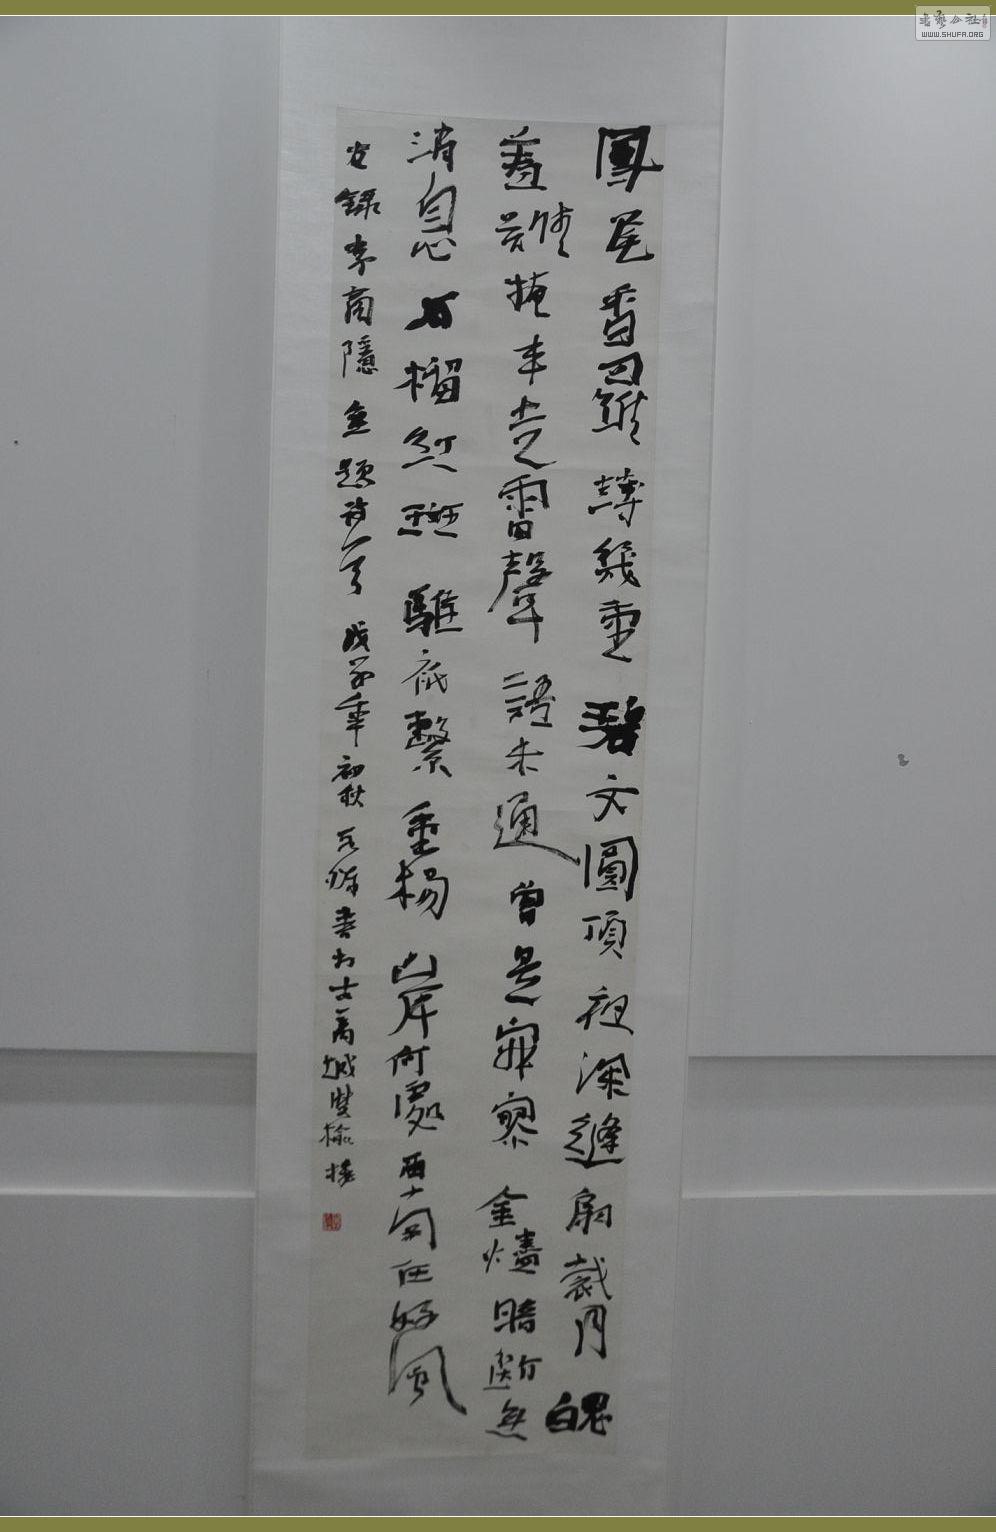 书艺公社
WWW.SHUFA.ORG
鳳尾香羅薄幾重碧文圓頂夜深縫扇裁月魄
羞難掩車走雷聲語未通曾是寂寥金燼暗斷無
消息石榴紅斑騅祇繫垂楊岸何處西南任好風
右錄李商隱無題詩一首戊子年初秋書於古萬城榆樓